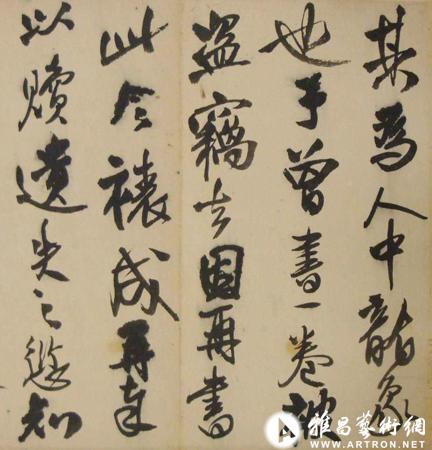 其為人中龍象
也予曾書一卷被
盜竊去因再書
此今裱成再奉
以贖遺失之愆知
雅昌藝術網
WWW.ARTRON.NET